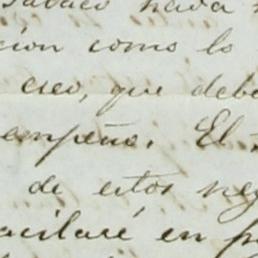 tabaco nada
cion como lo
creo, que debe
empeño. El
de estos neg
acilaré en p